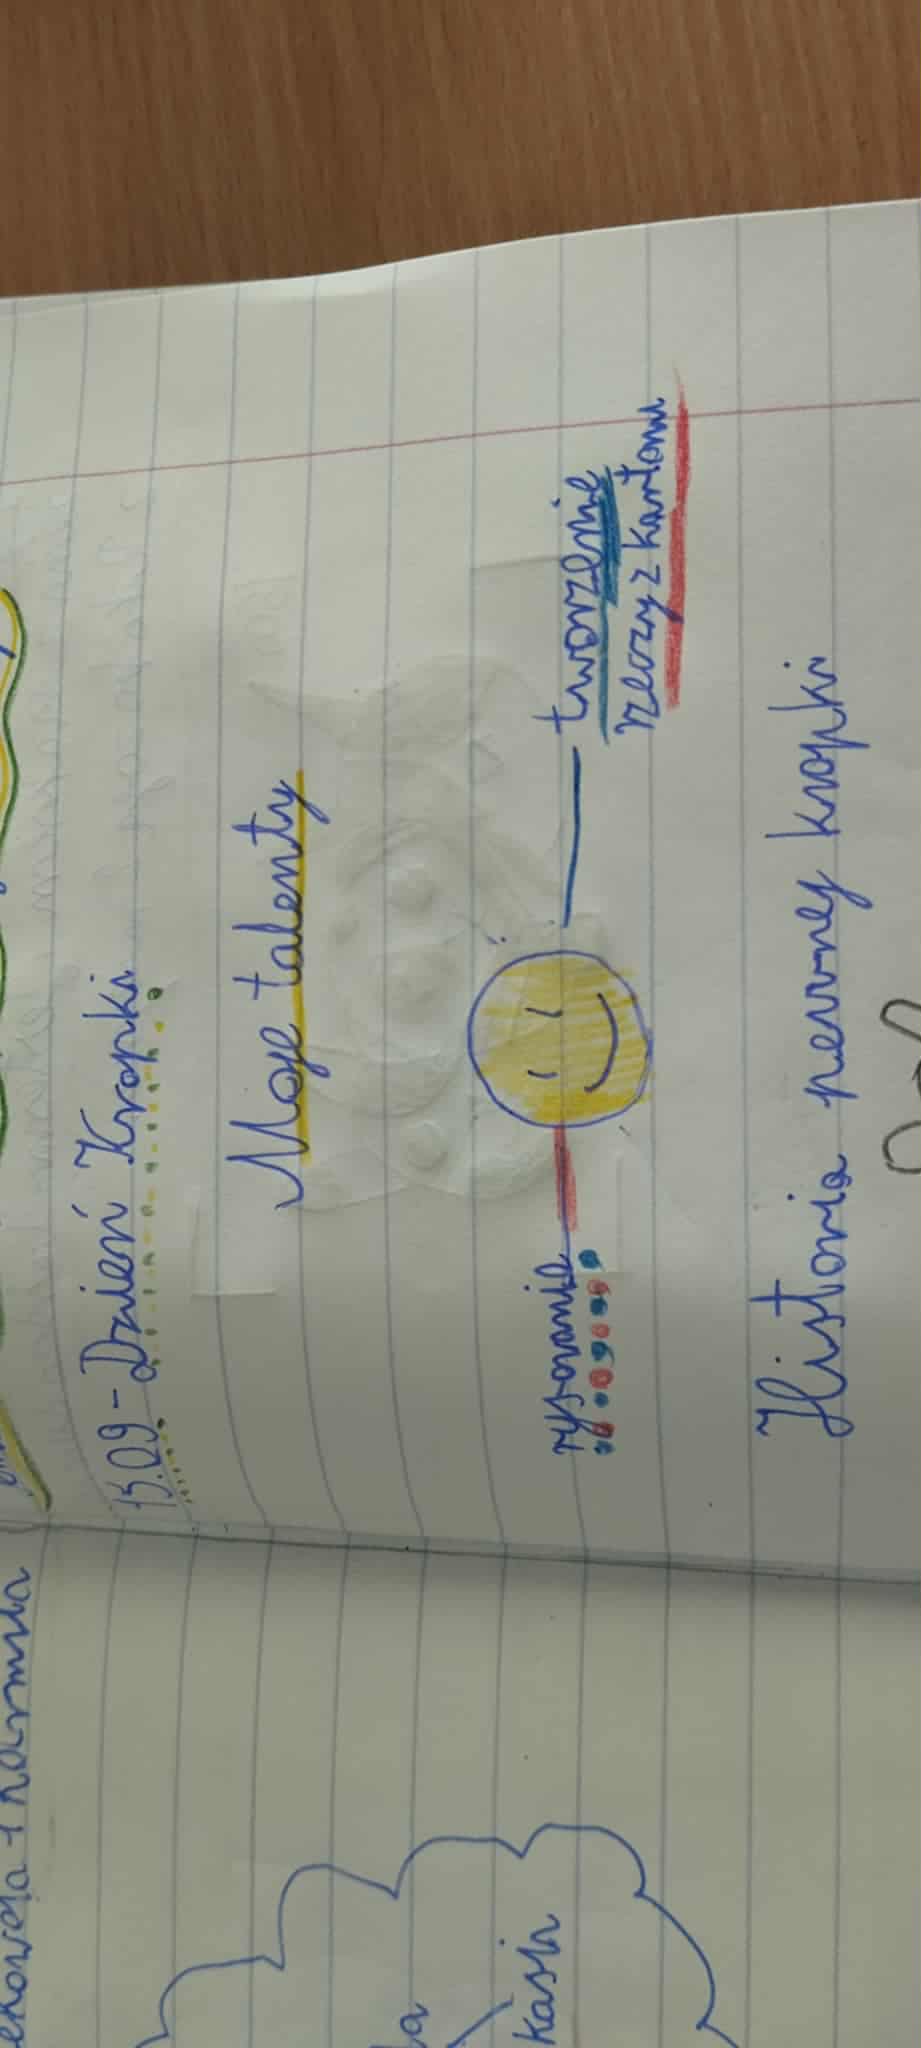 15.09 - Dzień Kropki
Moje talenty
rysowanie
tworzenie
rzeczy z kartonu
Historia pewnej kropki
Kasia